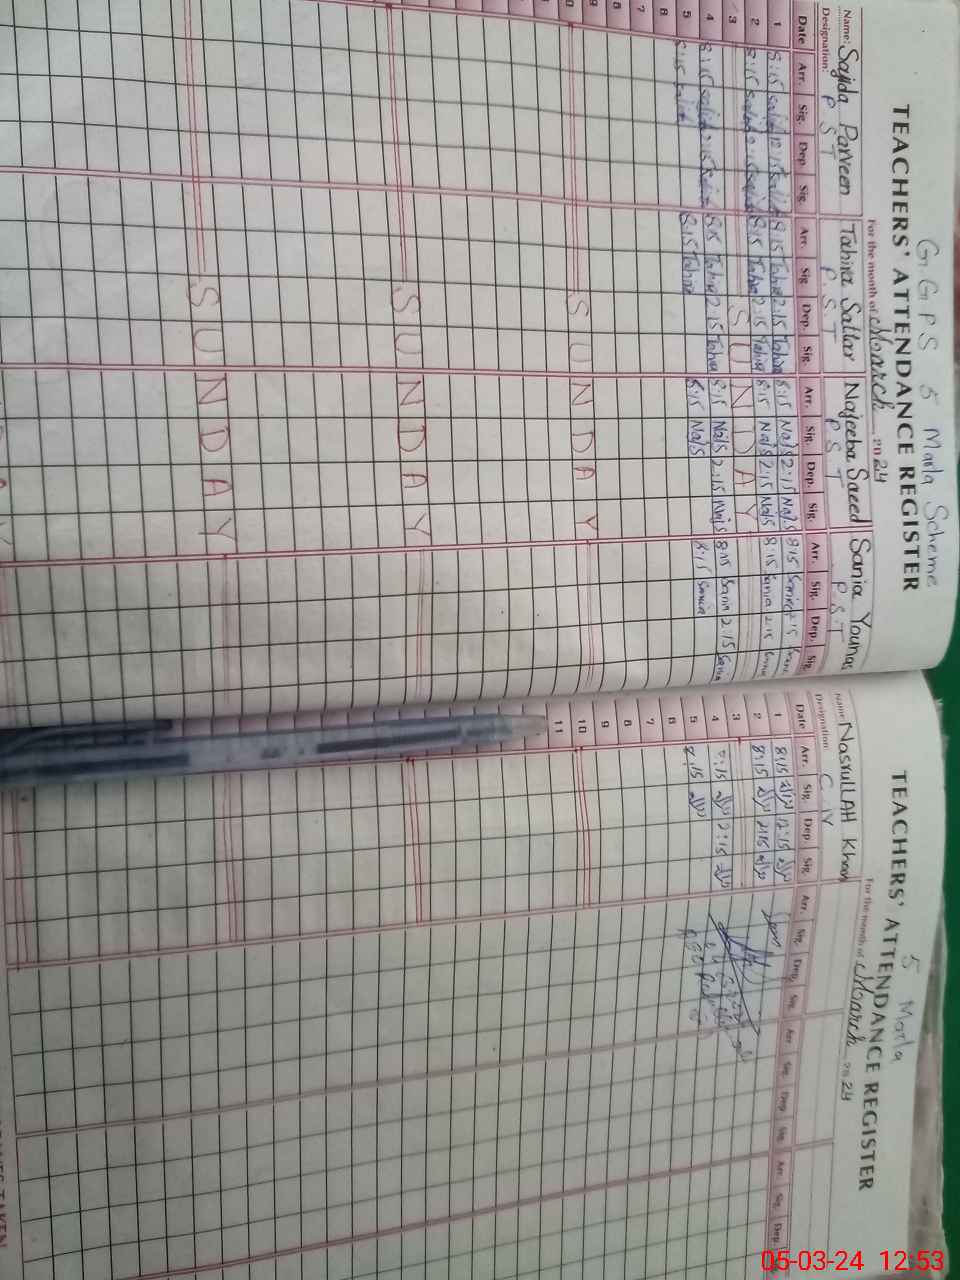 G.G P S 5 Marla Scheme
TEACHERS' ATTENDANCE REGISTER
For the month of March 2024
Name: Sajida Parveen Tahira Sattar Najeeba Saeed Sania Younas
Designation: P S T P.S.T P S T P.S.T
Date Arr. Sig. Dep. Sig. Arr. Sig Dep. Sig. Arr. Sig. Dep. Sig. Arr. Sig. Dep. Sig.
1 8:15 12:15 8:15 Tahira 2:15 Tahira 8:15 Na/S 2:15 Na/S 8:15
2 8:15 8:15 Tahira 2:15 Tahira 8:15 Na/S 2:15 Na/S 8:15 Sania 2:15
3 SUNDAY
4 8:15 2:15 8:15 Tahira 2:15 Tahira 8:15 Na/S 2:15 Na/S 8:15 Sania 2:15 Sania
5 8:15 8:15 Tahira 8:15 Na/S 8:15 Sania
6
7
8
9
10 SUNDAY
SUNDAY
SUNDAY
5 Marla
TEACHERS' ATTENDANCE REGISTER
For the month of March 2024
Name: Nasrullah Khan
Designation: C. IV
Date Arr. Sig. Dep. Sig. Arr. Sig. Dep. Sig. Arr. Sig. Dep. Sig. Arr. Sig. Dep.
1 8:15 12:15
2 8:15 2:15
3
4 8:15 2:15
5 8:15
6
7
8
9
10
11
05-03-24 12:53